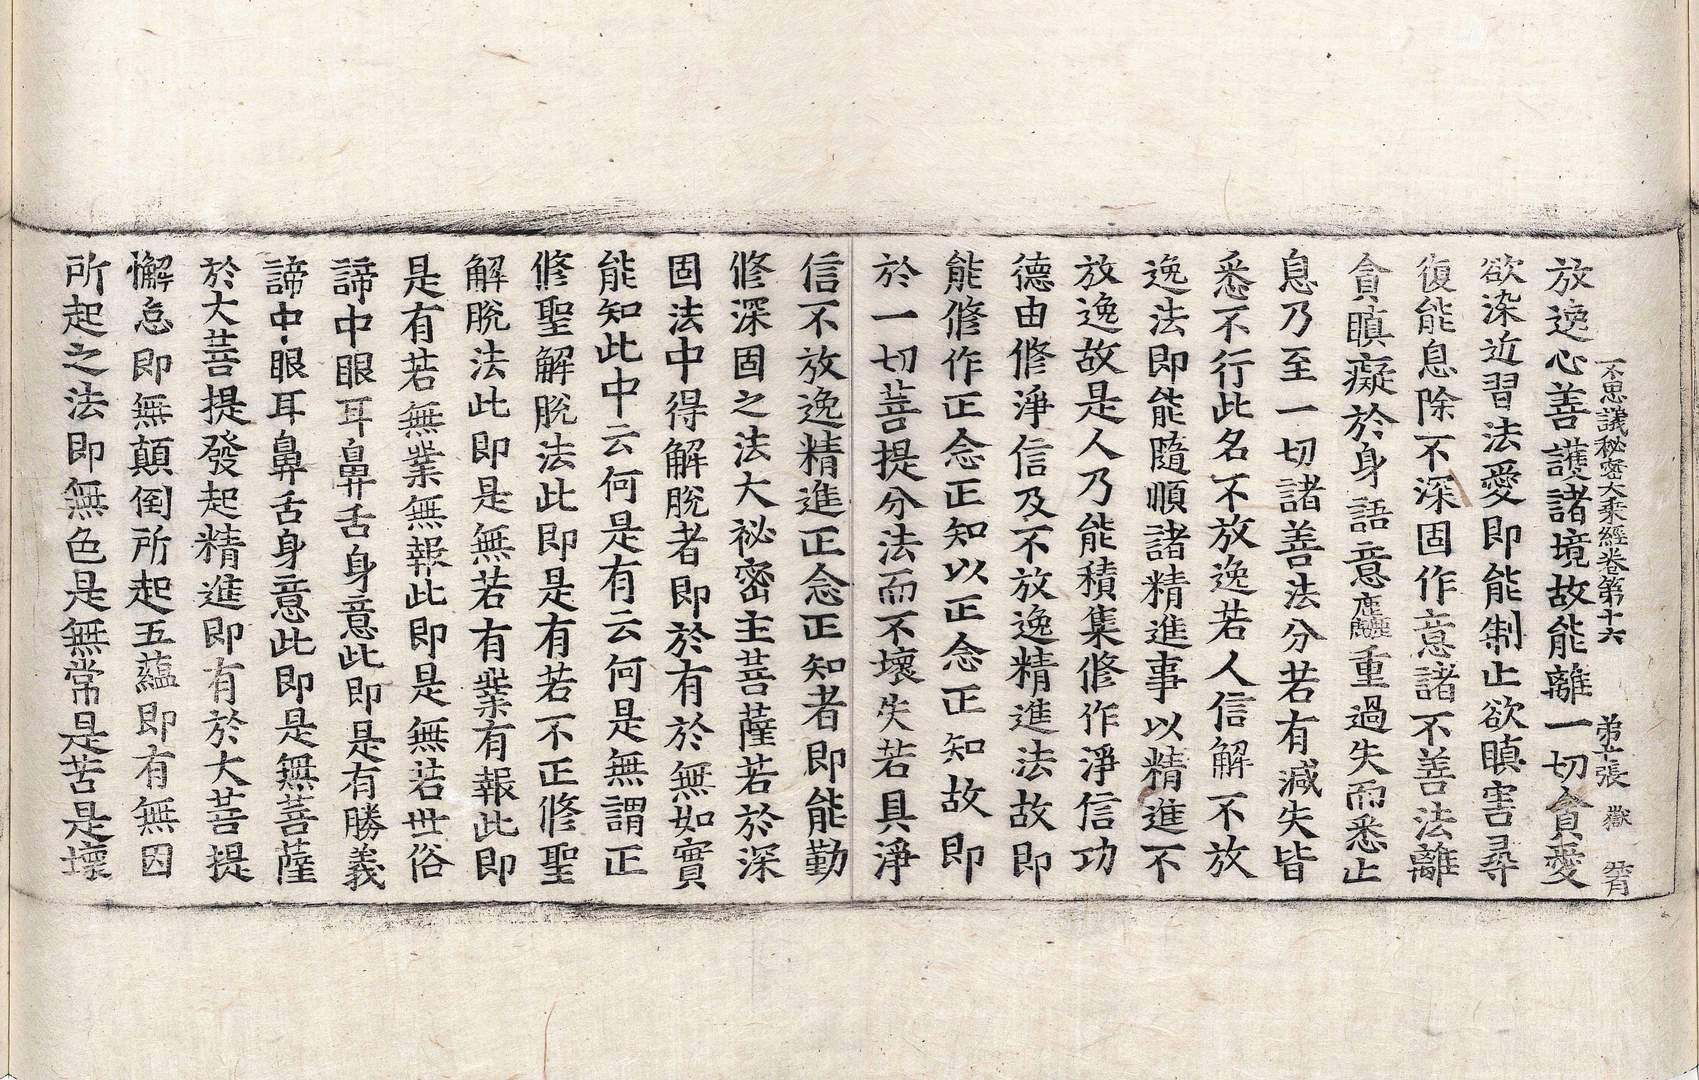 不思議秘密大乘經卷第十六 第五張 嶽
放逸心善護諸境故能離一切貪愛
欲染近習法愛即能制止欲瞋害尋
復能息除不深固作意諸不善法離
貪瞋癡於身語意麁重過失而悉止
息乃至一切諸善法分若有減失皆
悉不行此名不放逸若人信解不放
逸法即能隨順諸精進事以精進不
放逸故是人乃能積集修作淨信功
德由修淨信及不放逸精進法故即
能修作正念正知以正念正知故即
於一切菩提分法而不壞失若具淨
信不放逸精進正念正知者即能勤
修深固之法大祕密主菩薩若於深
固法中得解脫者即於有於無如實
能知此中云何是有云何是無謂正
修聖解脫法此即是有若不正修聖
解脫法此即是無若有業有報此即
是有若無業無報此即是無若世俗
諦中眼耳鼻舌身意此即是有勝義
諦中眼耳鼻舌身意此即是無菩薩
於大菩提發起精進即有於大菩提
懈怠即無顛倒所起五蘊即有無因
所起之法即無色是無常是苦是壞